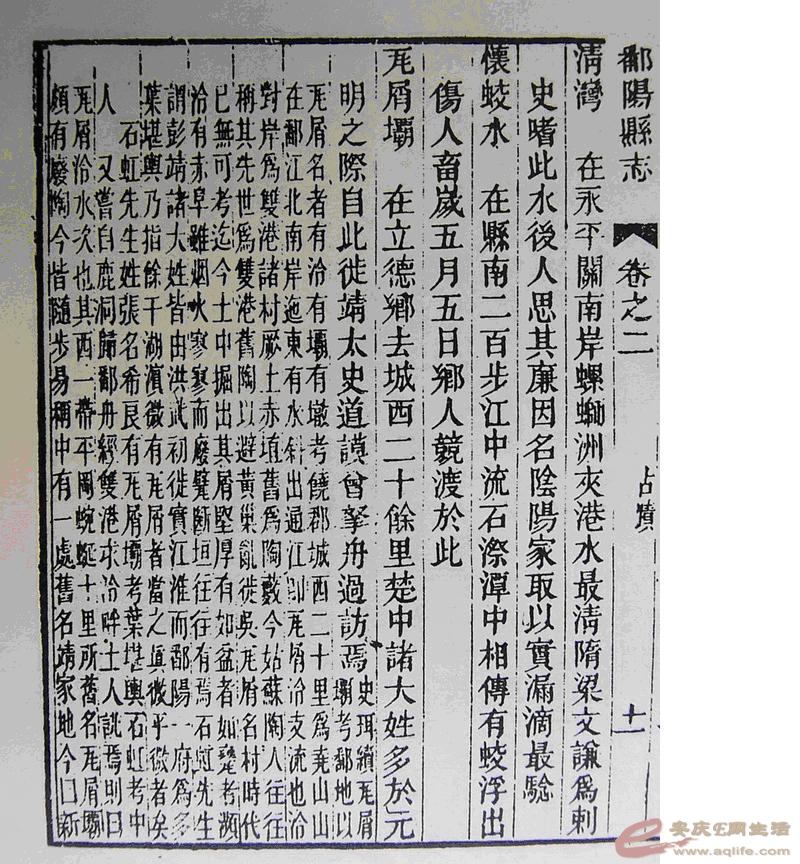 鄱陽縣志 卷之二 古蹟 十一
清灣 在永平關南岸螺螄洲夾港水最清隋梁文謙爲刺
史嗜此水後人思其廉因名陰陽家取以實漏滴最驗
懷蛟水 在縣南二百步江中流石漈潭中相傳有蛟浮出
傷人畜嵗五月五日鄉人競渡於此
瓦屑壩 在立德鄉去城西二十餘里楚中諸大姓多於元
明之際自此徙靖太史道謨曾拏舟過訪焉 史珥續瓦屑壩考鄱地以
瓦屑名者有洽有壩有墩考饒郡城西二十里爲堯山山
在鄱江北南岸迤東有水斜出通江卽瓦屑洽支流也洽
對岸爲雙港諸村厥土赤埴舊爲陶藪今姑蘇陶人往往
稱其先世爲雙港舊陶以避黃巢亂徙吳瓦屑名村時代
已無可考迄今土中掘出其屑堅厚有如盆者如甓者瀕
洽有赤阜雖烟火寥寥而廢甓斷垣往往有焉石虹先生
謂彭靖諸大姓皆由洪武初徙實江淮而鄱陽一府爲多
葉堪輿乃指餘干湖濱微有瓦屑者當之眞微乎微者矣
石虹先生姓張名希良有瓦屑壩考葉堪輿石虹考中
人 又嘗自鹿洞歸鄱舟經雙港求洽畔土人 焉則曰
瓦屑洽水次也其西一帶平岡蜿蜒十里所舊名瓦屑壩
頗有廢陶今皆隨步易稱中有一處舊名靖家地今口新
安庆E网生活
www.aqlife.com